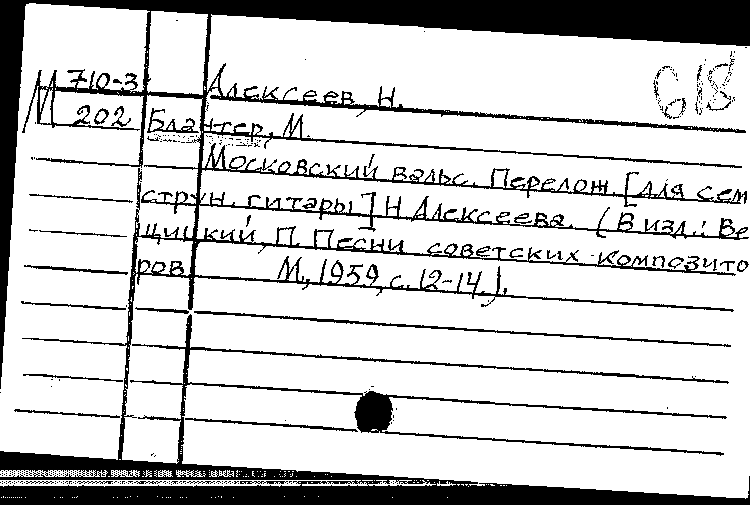 618
М 710-3 Алексеев, Н.
202 Блантер, М.
Московский вальс. Перелож. [для сем
струн. гитары] Н Алексеева. (В изд.: Ве
щицкий, П. Песни советских композито
ров М., 1959, с. 12-14.).